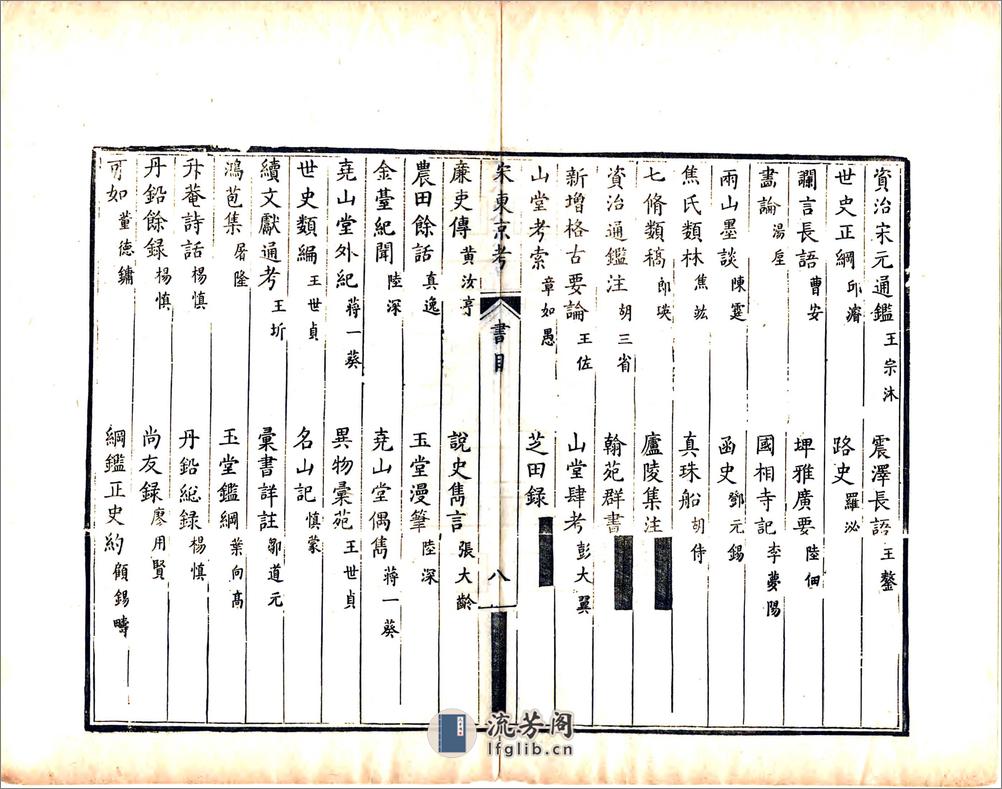 資治宋元通鑑 王宗沐 震澤長語 王鏊
世史正綱 邱濬 路史 羅泌
讕言長語 曹安 埤雅廣要 陸佃
畫論 湯垕 國相寺記 李夢陽
兩山墨談 陳霆 函史 鄧元錫
焦氏類林 焦竑 真珠船 胡侍
七脩類稿 郎瑛 廬陵集注
資治通鑑注 胡三省 翰苑群書
新增格古要論 王佐 山堂肆考 彭大翼
山堂考索 章如愚 芝田録
宋東京考 書目 八
廉吏傳 黄汝亨 說史雋言 張大齡
農田餘話 真逸 玉堂漫筆 陸深
金臺紀聞 陸深 堯山堂偶雋 蔣一葵
堯山堂外紀 蔣一葵 異物彙苑 王世貞
世史類編 王世貞 名山記 慎蒙
續文獻通考 王圻 彙書詳註 鄒道元
鴻苞集 屠隆 玉堂鑑綱 葉向高
升菴詩話 楊慎 丹鉛総録 楊慎
丹鉛餘録 楊慎 尚友録 廖用賢
可如 董德鏞 綱鑑正史約 顧錫疇
流芳阁
lfglib.cn